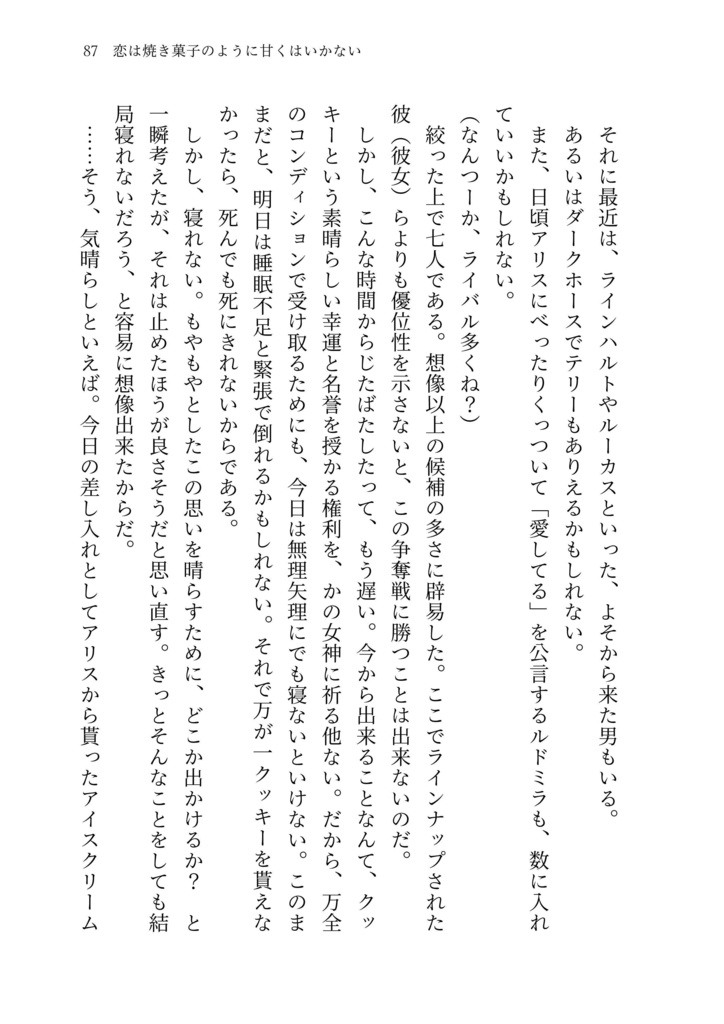 87 恋は焼き菓子のように甘くはいかない
それに最近は、ラインハルトやルーカスといった、よそから来た男もいる。
あるいはダークホースでテリーもありえるかもしれない。
また、日頃アリスにべったりくっついて「愛してる」を公言するルドミラも、数に入れ
ていいかもしれない。
(なんつーか、ライバル多くね?)
絞った上で七人である。想像以上の候補の多さに辟易した。ここでラインナップされた
彼(彼女)らよりも優位性を示さないと、この争奪戦に勝つことは出来ないのだ。
しかし、こんな時間からじたばたしたって、もう遅い。今から出来ることなんて、クッ
キーという素晴らしい幸運と名誉を授かる権利を、かの女神に祈る他ない。だから、万全
のコンディションで受け取るためにも、今日は無理矢理にでも寝ないといけない。このま
まだと、明日は睡眠不足と緊張で倒れるかもしれない。それで万が一クッキーを貰えな
かったら、死んでも死にきれないからである。
しかし、寝れない。もやもやとしたこの思いを晴らすために、どこか出かけるか? と
一瞬考えたが、それは止めたほうが良さそうだと思い直す。きっとそんなことをしても結
局寝れないだろう、と容易に想像出来たからだ。
……そう、気晴らしといえば。今日の差し入れとしてアリスから貰ったアイスクリーム